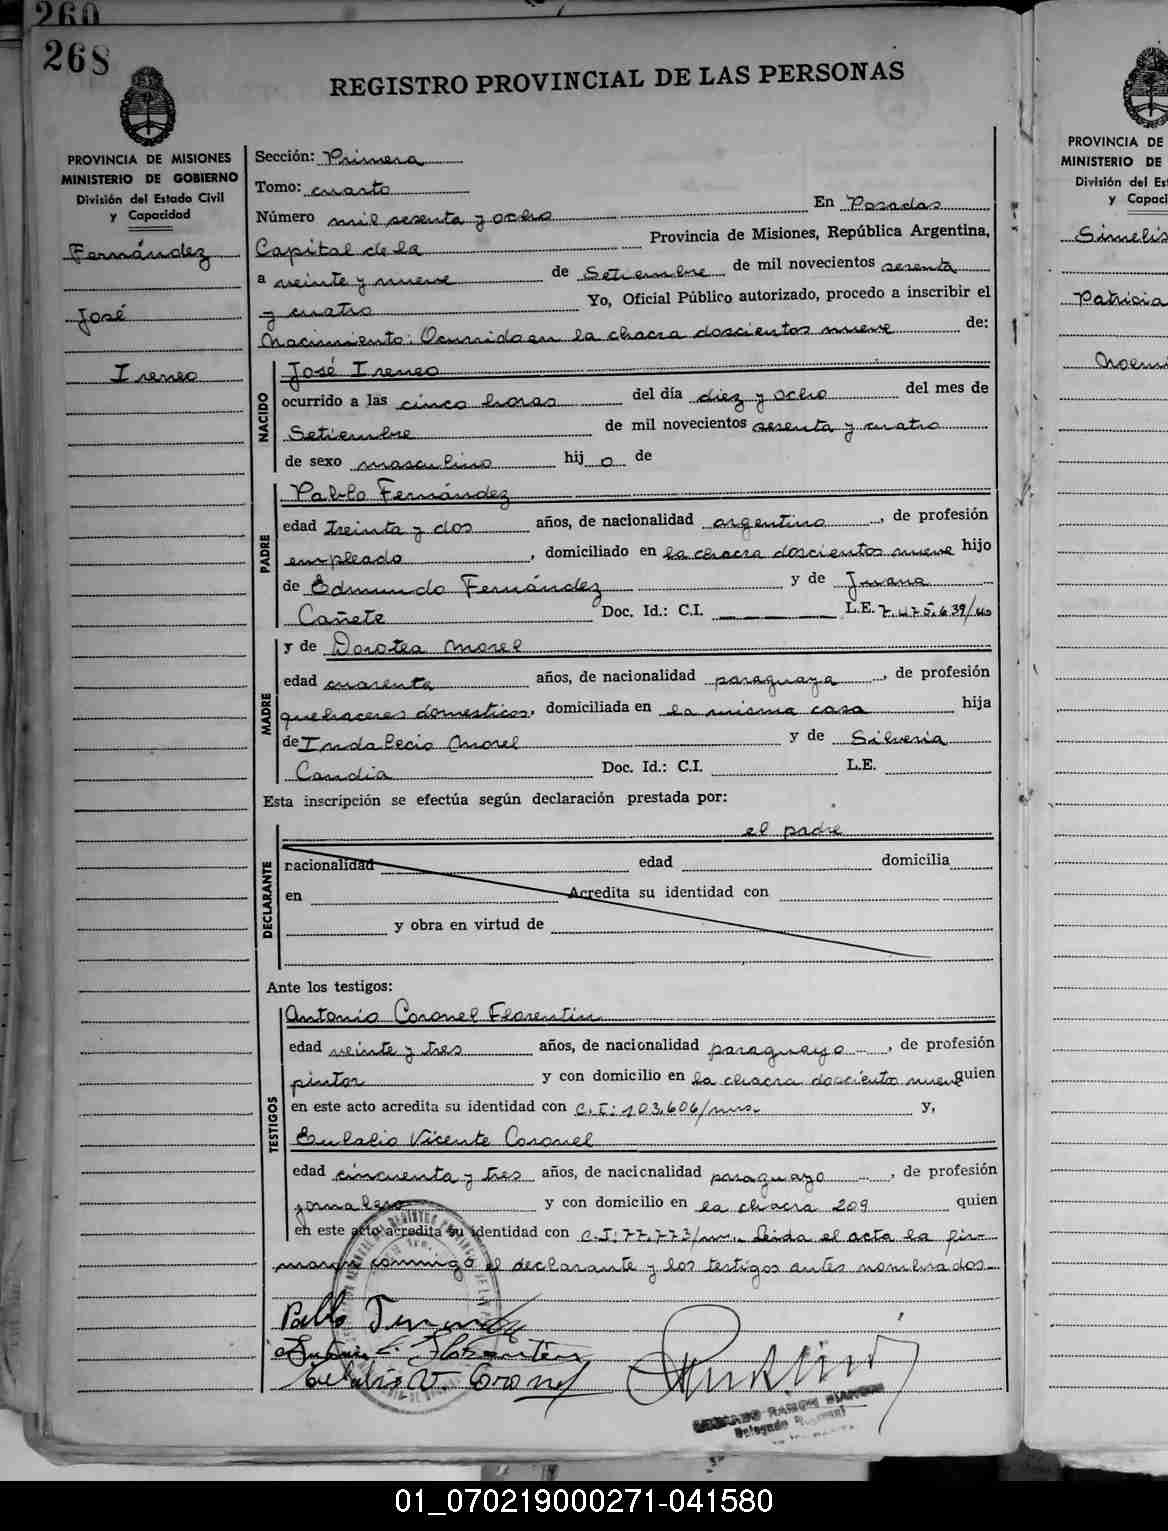 260
268
REGISTRO PROVINCIAL DE LAS PERSONAS
PROVINCIA DE MISIONES
MINISTERIO DE GOBIERNO
División del Estado Civil
y Capacidad
Fernández
José
Ireneo
Sección: Primera
Tomo: cuarto
Número mil sesenta y ocho En Posadas
Capital de la Provincia de Misiones, República Argentina,
a veinte y nueve de Setiembre de mil novecientos sesenta
y cuatro Yo, Oficial Público autorizado, procedo a inscribir el
Nacimiento: Ocurrido en la chacra doscientos nueve de:
NACIDO
José Ireneo
ocurrido a las cinco horas del día diez y ocho del mes de
Setiembre de mil novecientos sesenta y cuatro
de sexo masculino hij o de
PADRE
Pablo Fernández
edad treinta y dos años, de nacionalidad argentino, de profesión
empleado, domiciliado en la chacra doscientos nueve hijo
de Edmundo Fernández y de Juana
Cañete Doc. Id.: C.I. L.E. 7.475.639/
MADRE
y de Dorotea Morel
edad cuarenta años, de nacionalidad paraguaya, de profesión
quehaceres domesticos, domiciliada en la misma casa hija
de Indalecio Morel y de Silveria
Candia Doc. Id.: C.I. L.E.
Esta inscripción se efectúa según declaración prestada por:
el padre
DECLARANTE
nacionalidad edad domicilia
en Acredita su identidad con
y obra en virtud de
Ante los testigos:
TESTIGOS
Antonio Coronel Florentin
edad veinte y tres años, de nacionalidad paraguayo, de profesión
pintor y con domicilio en la chacra doscientos nueve quien
en este acto acredita su identidad con C.I: 103.606/mns. y,
Eulalio Vicente Coronel
edad cincuenta y tres años, de nacionalidad paraguayo, de profesión
jornalero y con domicilio en la chacra 209 quien
en este acto acredita su identidad con C.I: 77.773/mns. Leida el acta la fir-
maron conmigo el declarante y los testigos antes nombrados
Pablo
Antonio C. Florentin
Eulalio V. Coronel
RAMON
Delegado
PROVINCIA DE
MINISTERIO DE
División del Est
y Capaci
Simelis
Patricia
Noemi
01_070219000271-041580